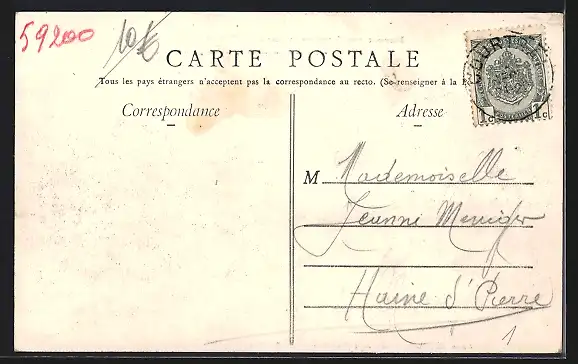 59200
10
CARTE POSTALE
Tous les pays étrangers n'acceptent pas la correspondance au recto. (Se renseigner à la
Correspondance
Adresse
1c 1c
M Mademoiselle
Jeanne
Haine St Pierre
1